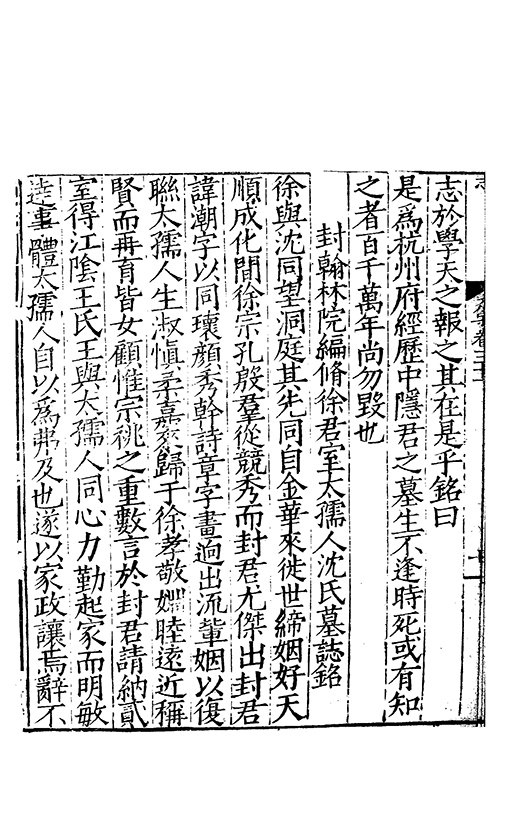 志於學天之報之其在是乎銘曰
是爲杭州府經歷中隱君之墓生不逢時死或有知
之者百千萬年尚勿毀也
封翰林院編脩徐君室太孺人沈氏墓誌銘
徐與沈同望洞庭其先同自金華來徙世締姻好天
順成化間徐宗孔殷羣從競秀而封君尤傑出封君
諱潮字以同瓌顔秀幹詩章字畫逈出流輩姻以復
聯太孺人生淑愼柔嘉爰歸于徐孝敬婣睦遠近稱
賢而再育皆女顧惟宗祧之重數言於封君請納貳
室得江陰王氏王與太孺人同心力勤起家而明敏
達事體太孺人自以爲弗及也遂以家政讓焉辭不